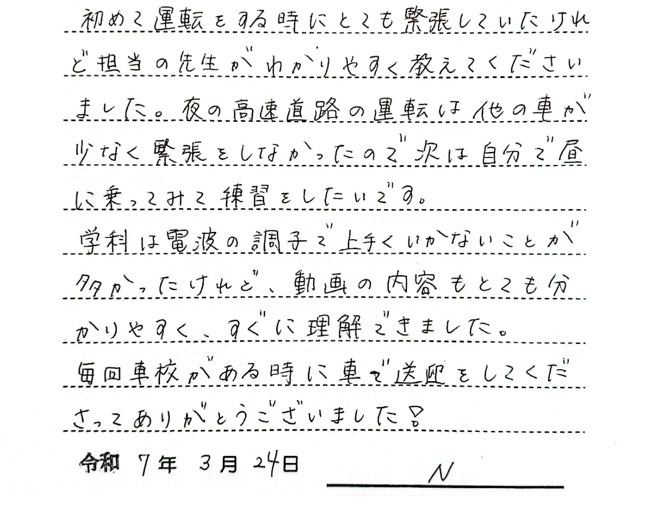 初めて運転をする時にとても緊張していたけれ
ど担当の先生がわかりやすく教えてください
ました。夜の高速道路の運転は他の車が
少なく緊張をしなかったので次は自分で昼
に乗ってみて練習をしたいです。
学科は電波の調子で上手くいかないことが
多かったけれど、動画の内容もとても分
かりやすく、すぐに理解できました。
毎回車校がある時に車で送迎をしてくだ
さってありがとうございました!
令和 7年 3月 24日 N